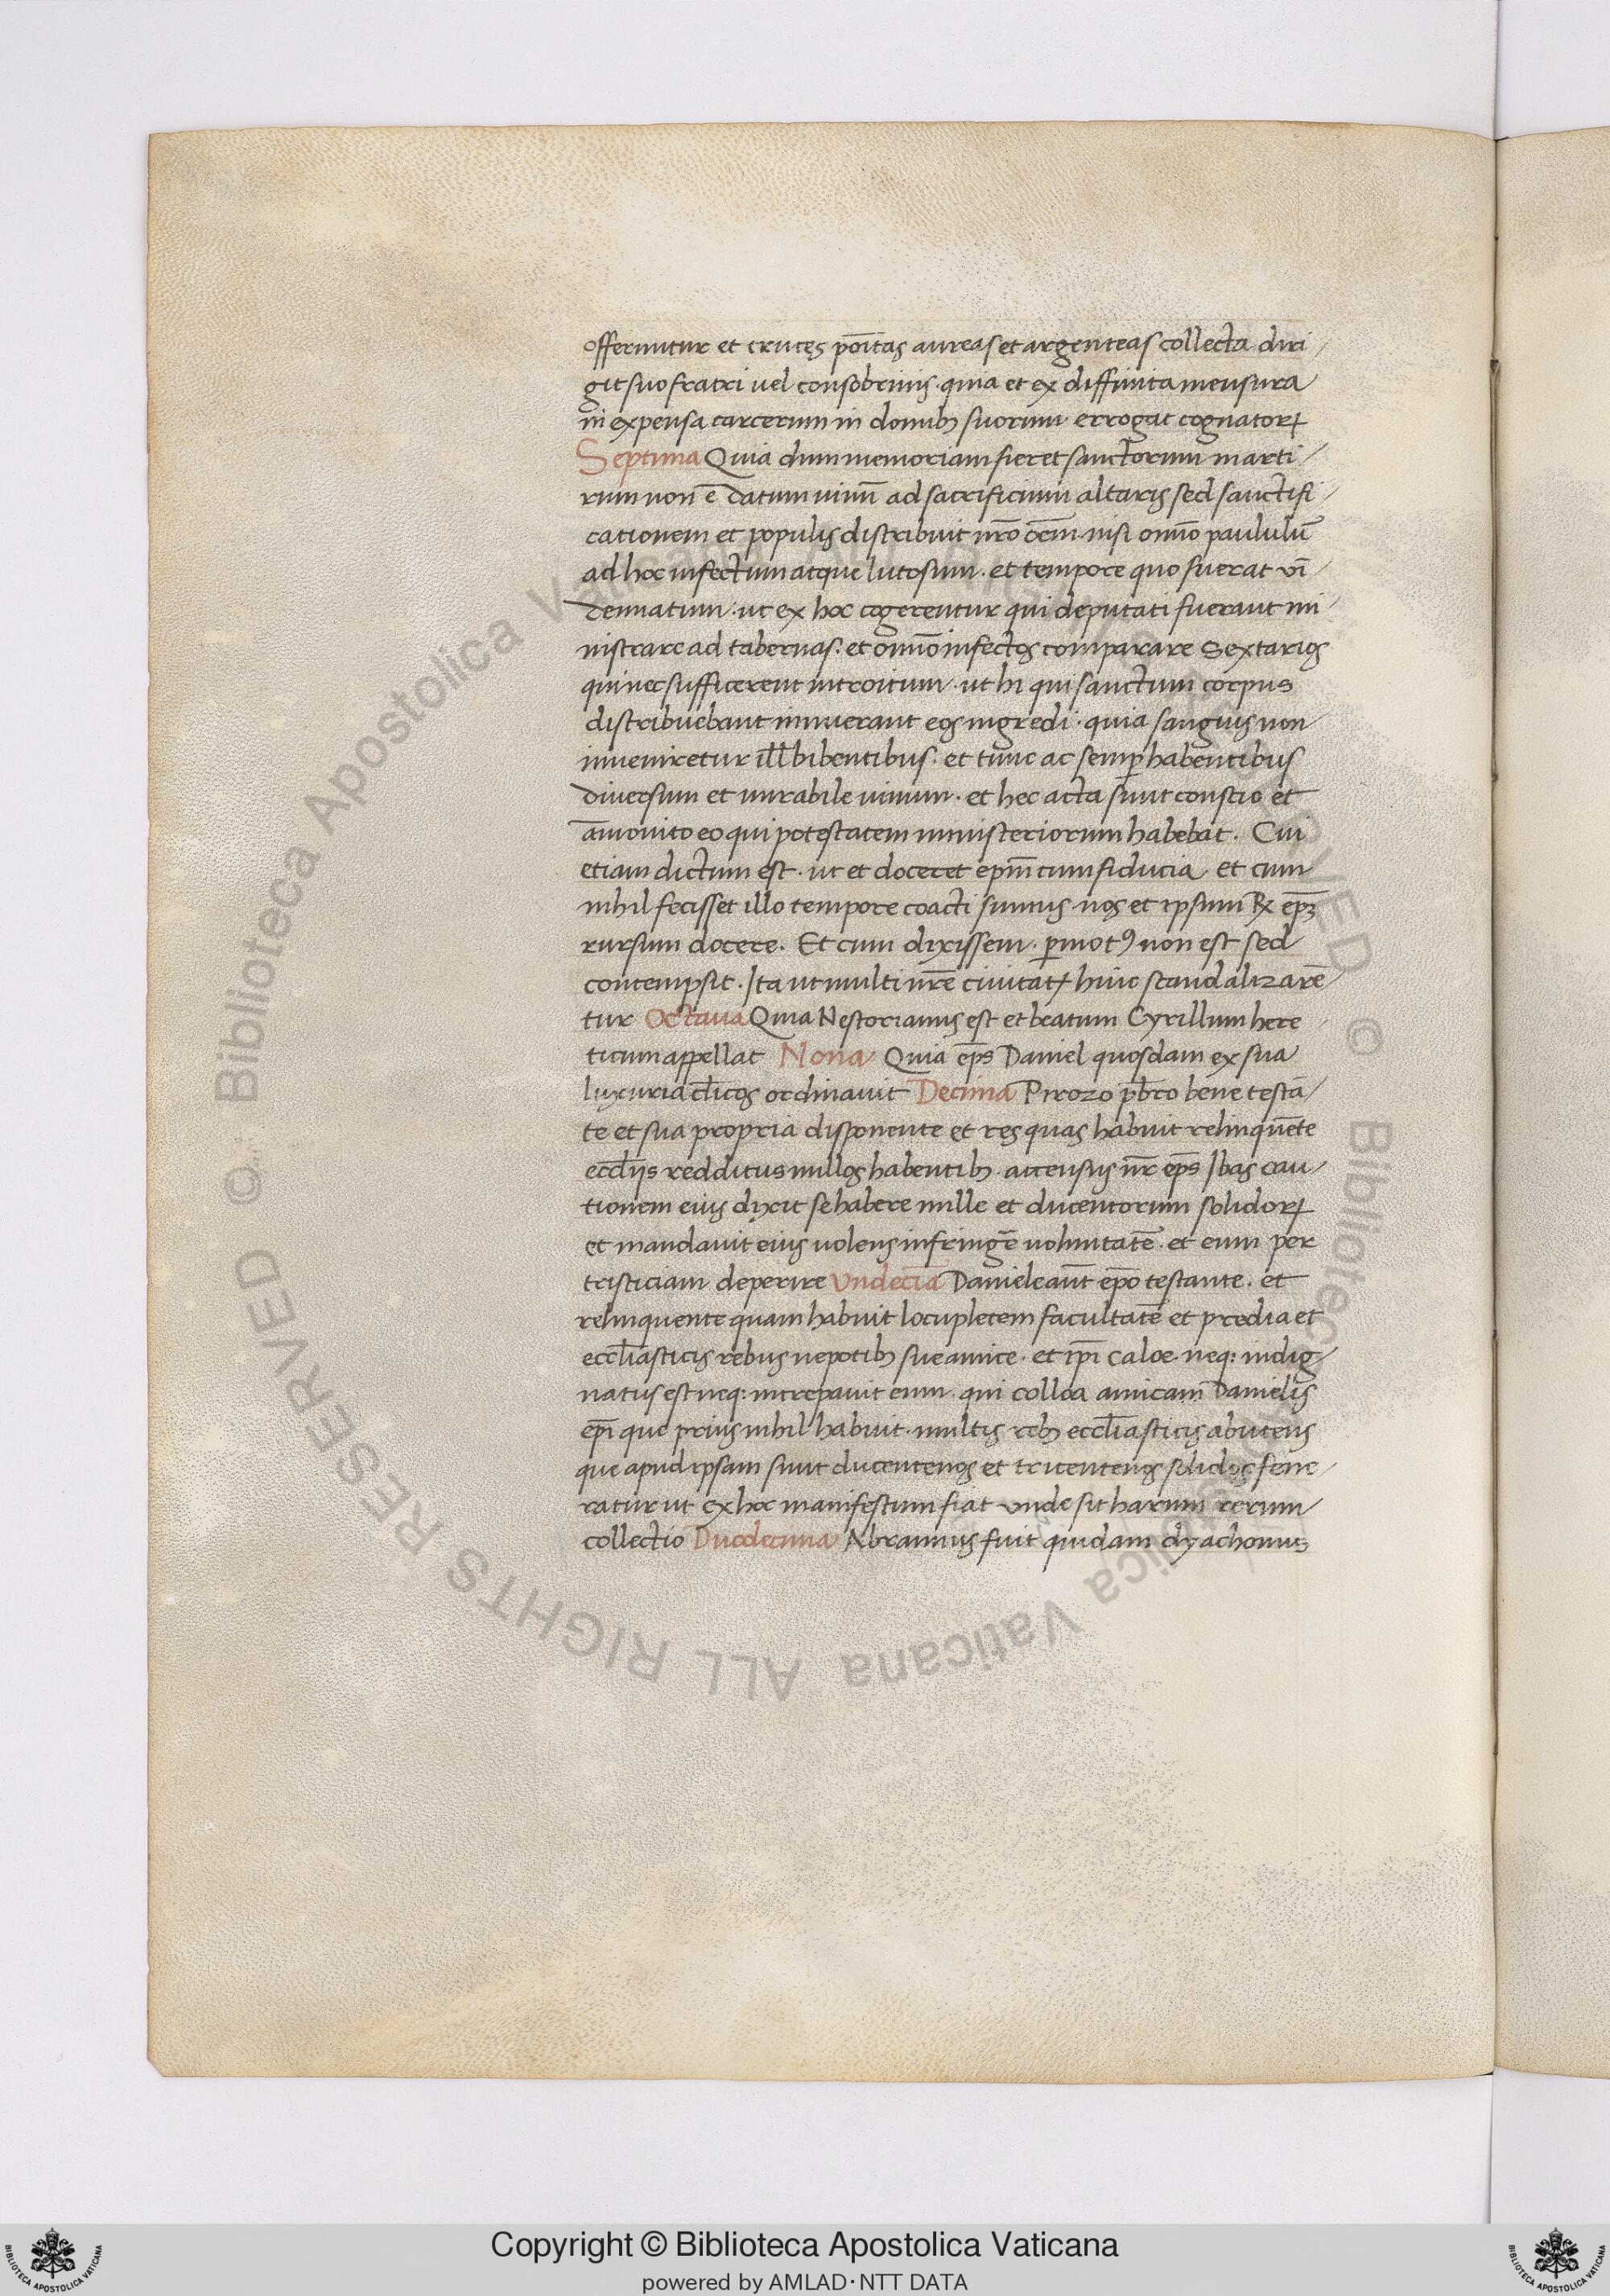 offeruntur et cruces põitas aureas et argenteas collecta diri
git suo fratri uel consobrinis · quia et ex diffinita mensura
in expensa carcerum in domibꝫ suorum errogat cognatorꝝ
Septima Quia dum memoriam fieret sanctorum marti
rum non ē datum uinū ad sacrificium altaris sed sanctifi
cationem et populis distribuit nr̄o · nisi omīo paululū
ad hoc infectum atque lutosum · et tempore quo fuerat vī
demiatum · ut ex hoc cogerentur qui deputati fuerant mi
nistrare ad tabernas : et omīo infectos comparare Sextarios
qui nec sufficerent introitum · ut hi qui sanctum corpus
distribuebant innuerant eos ingredi · quia sanguis non
inueniretur ill̄ bibentibus : et tunc ac semꝑ habentibus
diuersum et mirabile uinum · et hec acta sunt conscio et
āmonito eo qui potestatem ministeriorum habebat . Cui
etiam dictum est · ut et doceret ep̄m cum fiducia et cum
nihil fecisset illo tempore coacti sumus nos et ipsum ep̄ꝫ
rursum docere . Et cum dixissem · ꝑmotꝰ non est sed
contempsit . Ita ut multi nr̄e ciuitatꝭ hinc scandalizarē
tur Octaua Quia Nestorianus est et beatum Cyrillum here
ticum appellat Nona Quia ep̄s Daniel quosdam ex sua
luxuria cl̄icos ordinauit Decima Pirozo p̄bro bene testā
te et sua propria disponente et res quas habuit relinquēte
eccl̄ijs redditus nullos habentibꝫ · accensus nr̄ ep̄s Ibas cau
tionem eius dixit se habere mille et ducentorum solidorꝝ
et mandauit eius uolens infringe̅ uoluntatē · et eum per
tristiciam deperire Vndecīa Daniele aūt ep̄o testante · et
relinquente quam habuit locupletem facultatē et predia et
eccl̄iasticis rebus nepotibꝫ sue amice · et ip̄i Caloe · neq: indig
natus est neq: increpauit eum · qui colloa amicam Danielis
ep̄i que prius nihil habuit · multis rebꝫ eccl̄iasticis abutens
que apud ipsam sunt ducentenos et tricentenos solidos fene
ratur ut ex hoc manifestum fiat vnde sit harum rerum
collectio Duodecima Abramius fuit quidam dyachonus
© Biblioteca Apostolica Vaticana ALL RIGHTS RESERVED
Copyright © Biblioteca Apostolica Vaticana
powered by AMLAD·NTT DATA